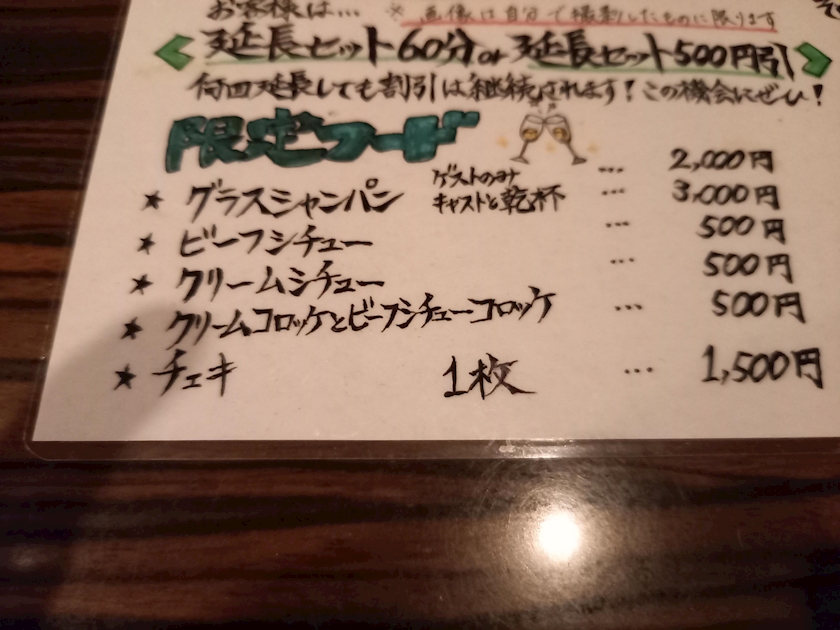 お客様は… ※画像は自分で撮影したものに限ります
延長セット60分or延長セット500円引
何回延長しても割引は継続されます!この機会にぜひ!
限定フード
★ グラスシャンパン ゲストのみ … 2,000円
キャストと乾杯 … 3,000円
★ ビーフシチュー … 500円
★ クリームシチュー … 500円
★ クリームコロッケとビーフシチューコロッケ … 500円
★ チェキ 1枚 … 1,500円